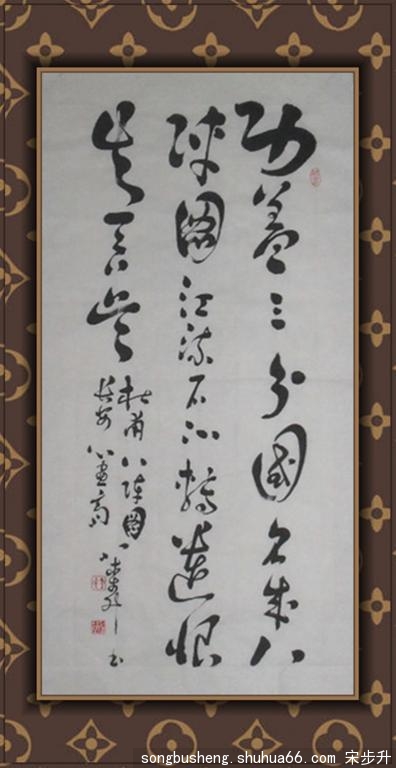 功蓋三分國名成八
陣圖江流石不轉遺恨
失吞吳
杜甫八陣圖
songbusheng.shuhua66.com 宋步升